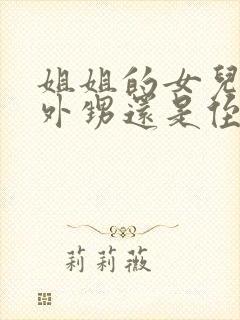 姐姐的女兒
外甥還是侄
莉莉薇